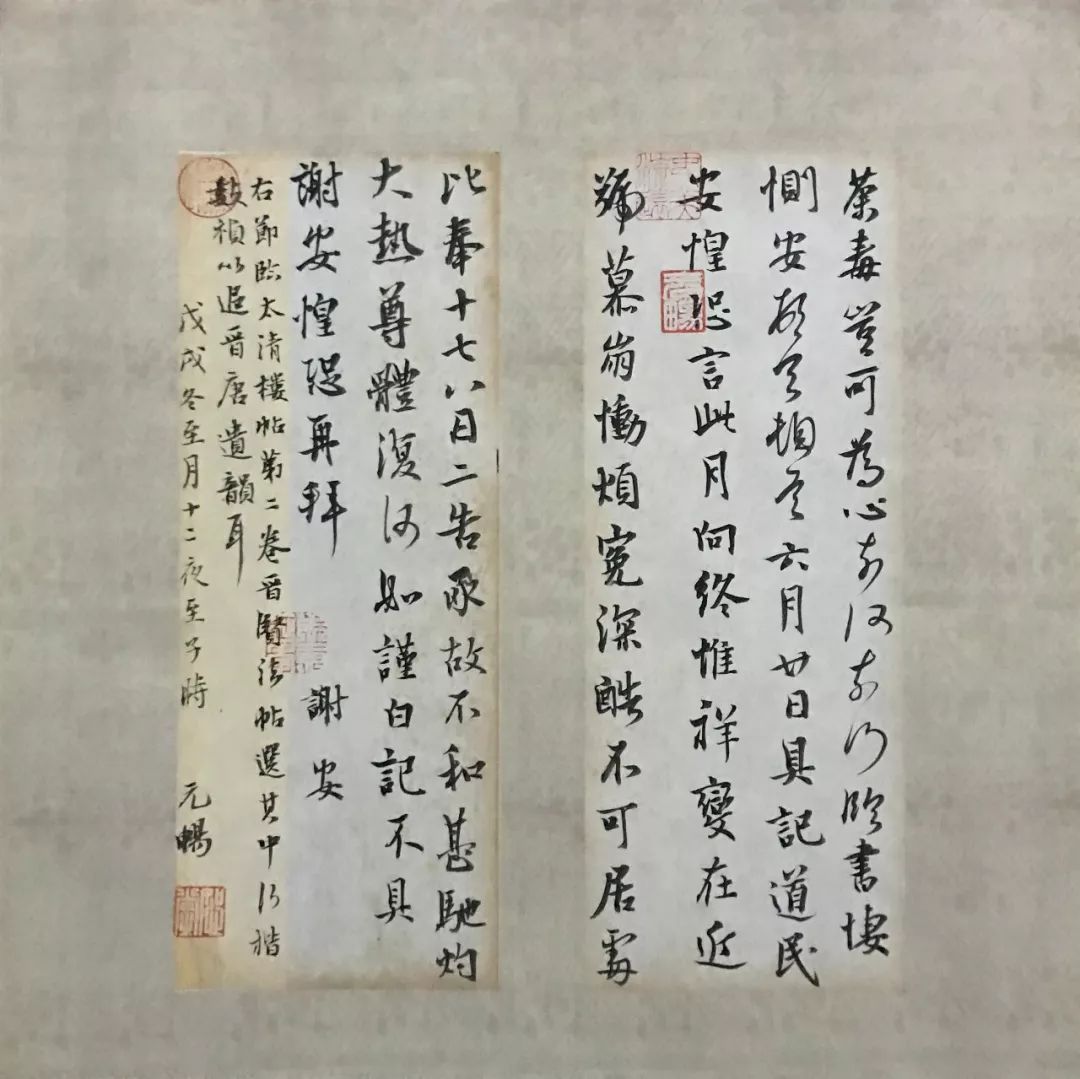 荼毒豈可為心奈何奈何臨書悽
惻安頓首頓首六月廿日具記道民
安惶恐言此月向終惟祥變在近
號慕崩慟煩冤深酷不可居處
比奉十七八日二告承故不和甚馳灼
大熱尊體復何如謹白記不具
謝安惶恐再拜 謝安
右節臨太清樓帖第二卷晉賢法帖選其中行楷
數禎以追晉唐遺韻耳
戊戌冬至月十二夜至子時 元暢